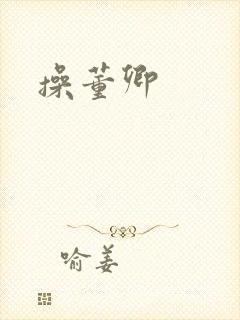 操董卿
喻姜